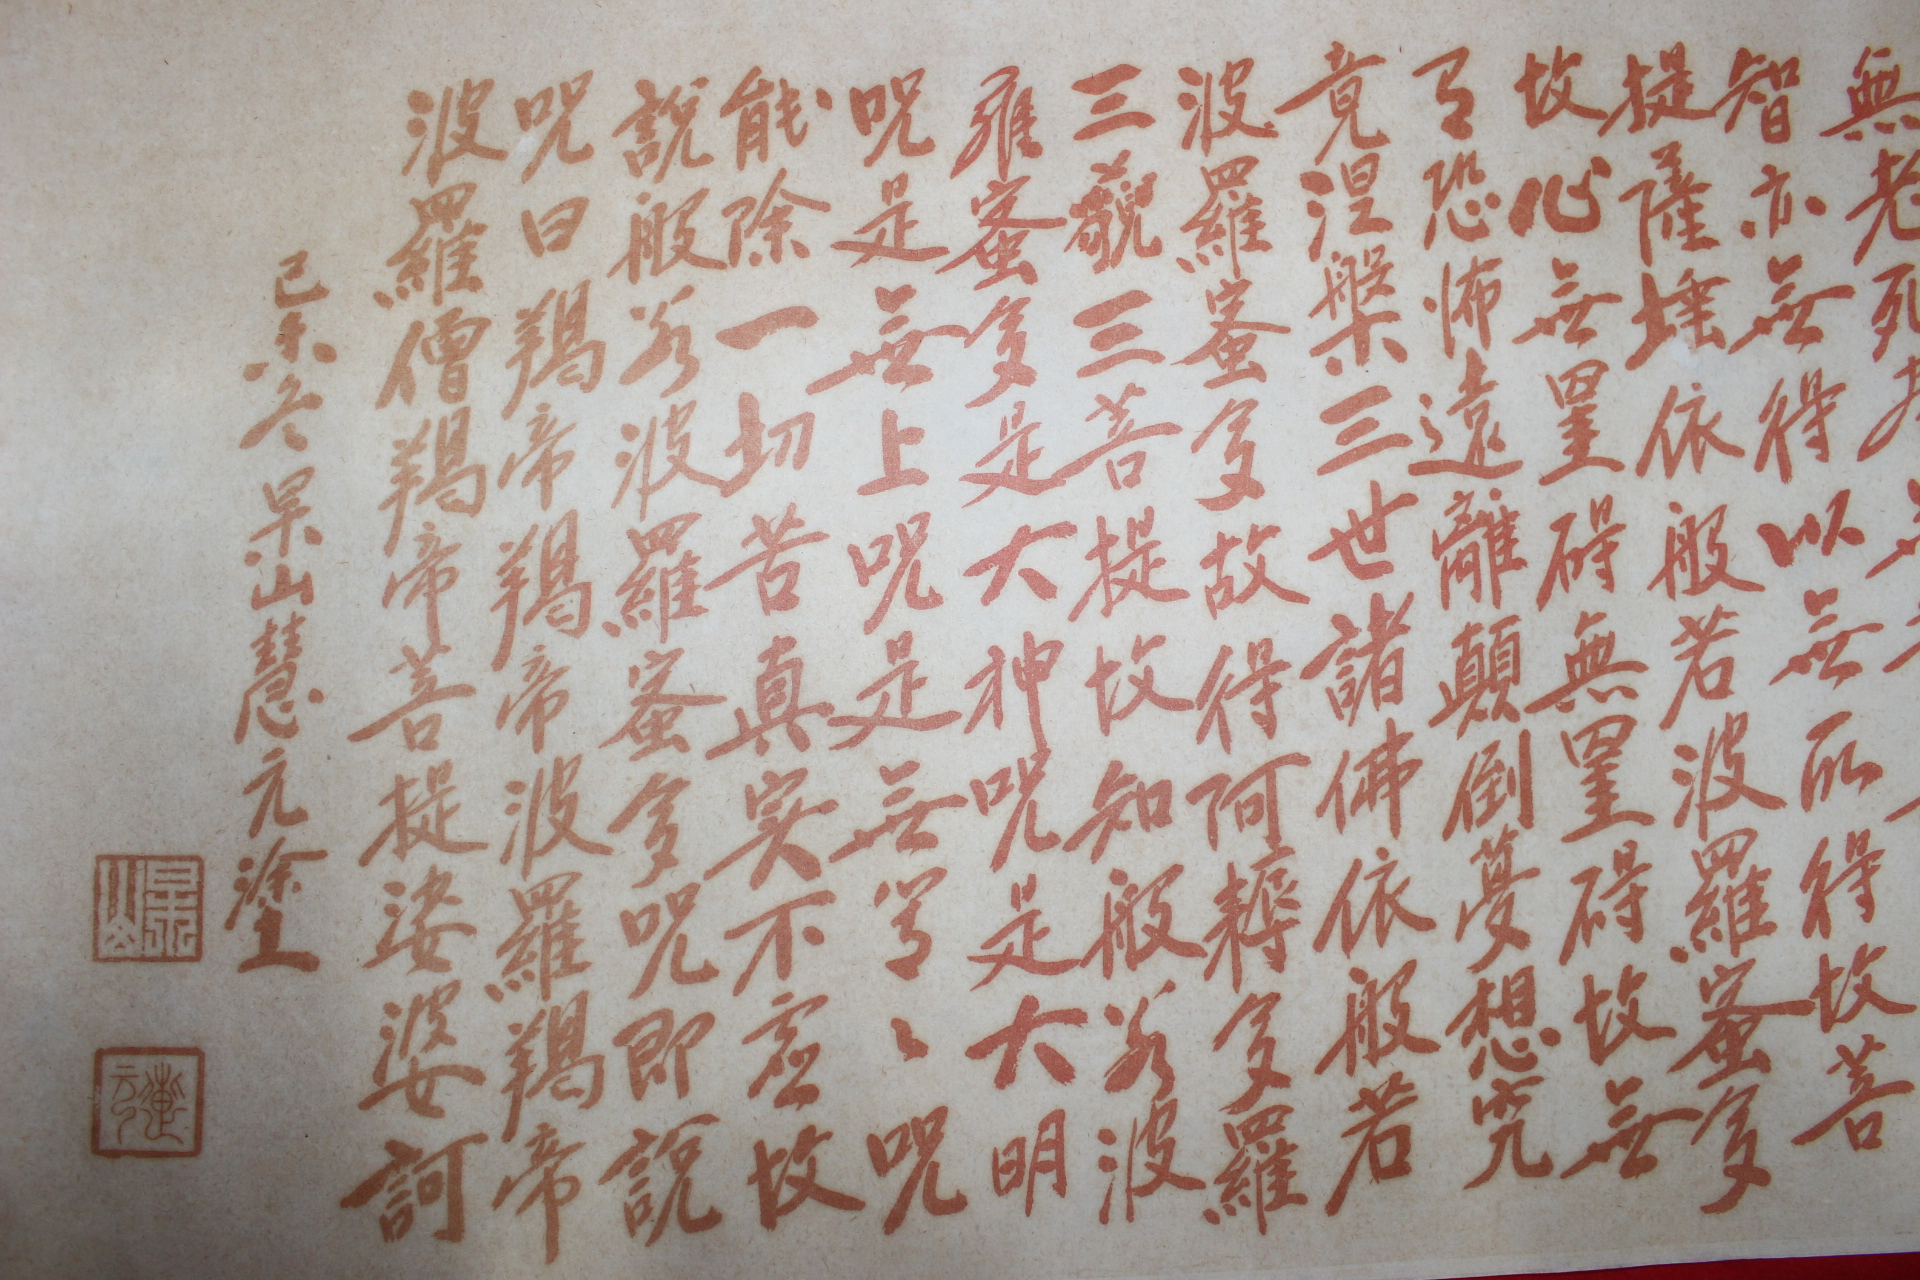 無老死
智亦無得以無所得故菩
提薩埵依般若波羅蜜多
故心無罣碍無罣碍故無
有恐怖遠離顛倒夢想究
竟涅槃三世諸佛依般若
波羅蜜多故得阿耨多羅
三藐三菩提故知般若波
羅蜜多是大神呪是大明
呪是無上呪是無等〻呪
能除一切苦真実不虚故
説般若波羅蜜多呪即説
呪曰羯帝羯帝波羅羯帝
波羅僧羯帝菩提娑婆訶
己未冬杲山慧元塗
杲山